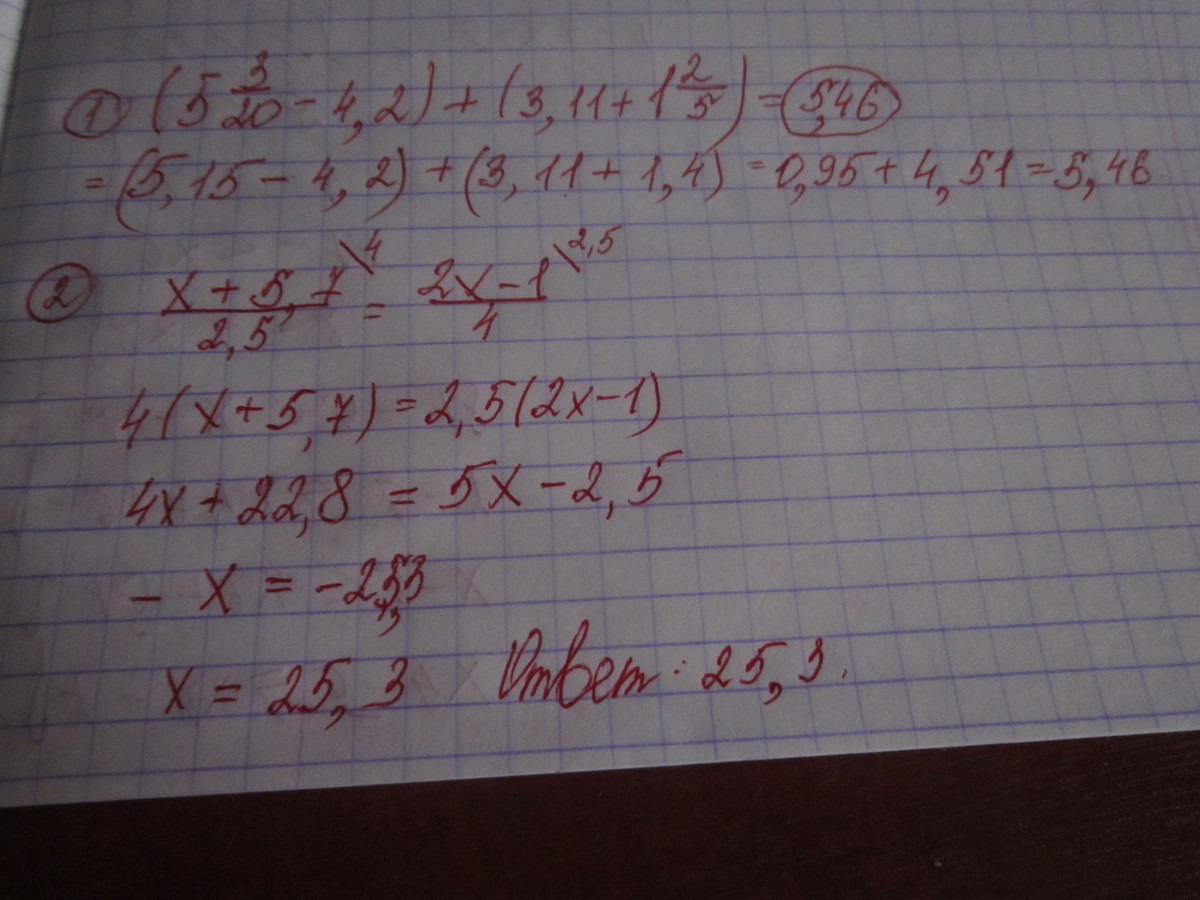 ① (5 3/20 - 4,2) + (3,11 + 1 2/5) = 5,46
= (5,15 - 4,2) + (3,11 + 1,4) = 0,95 + 4,51 = 5,46
② (x + 5,7)/2,5 \4 = (2x - 1)/4 \2,5
4(x + 5,7) = 2,5(2x - 1)
4x + 22,8 = 5x - 2,5
- x = -25,3
x = 25,3 Ответ: 25,3.